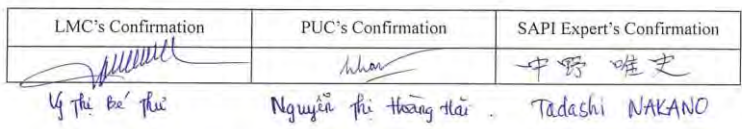 LMC's Confirmation PUC's Confirmation SAPI Expert's Confirmation
中野 唯史
Thị Bé Thư Nguyễn Thị Hoàng Hải . Tadashi NAKANO